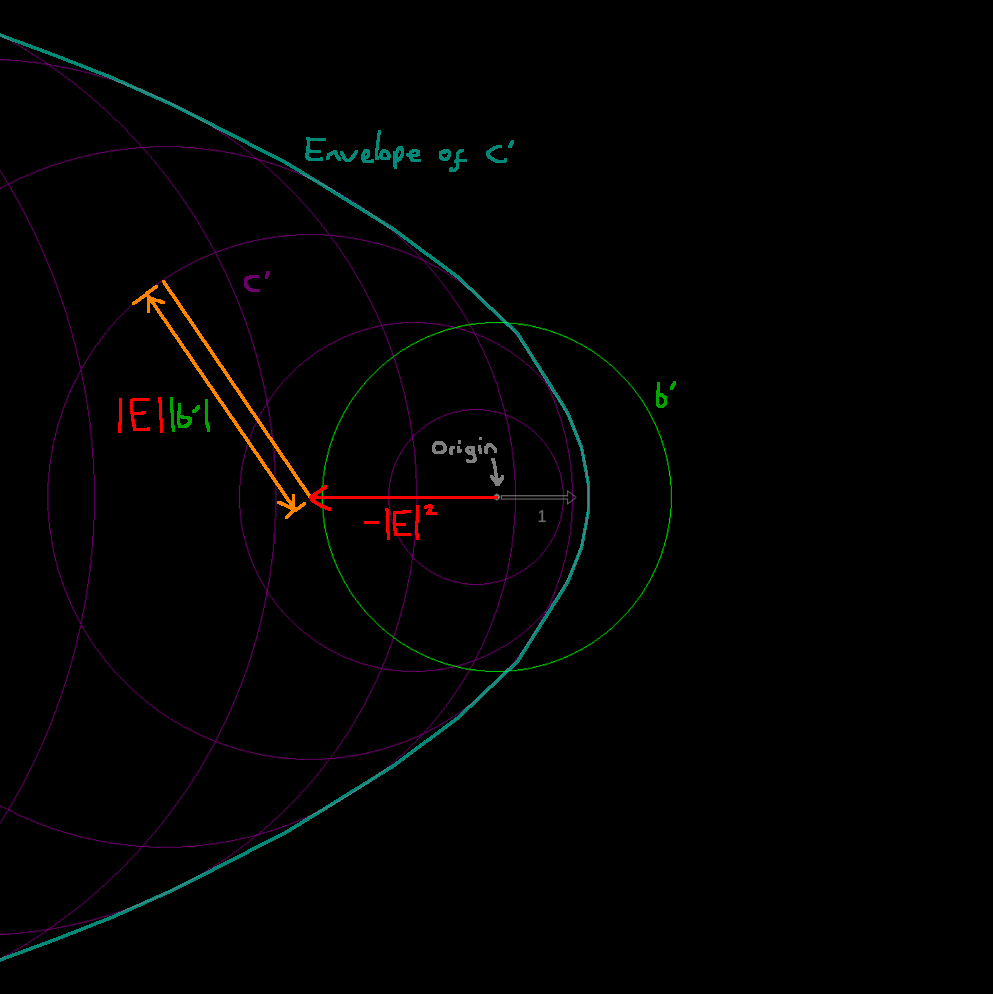 Envelope of c'
c'
b'
|E||b'|
Origin
-|E|²
1